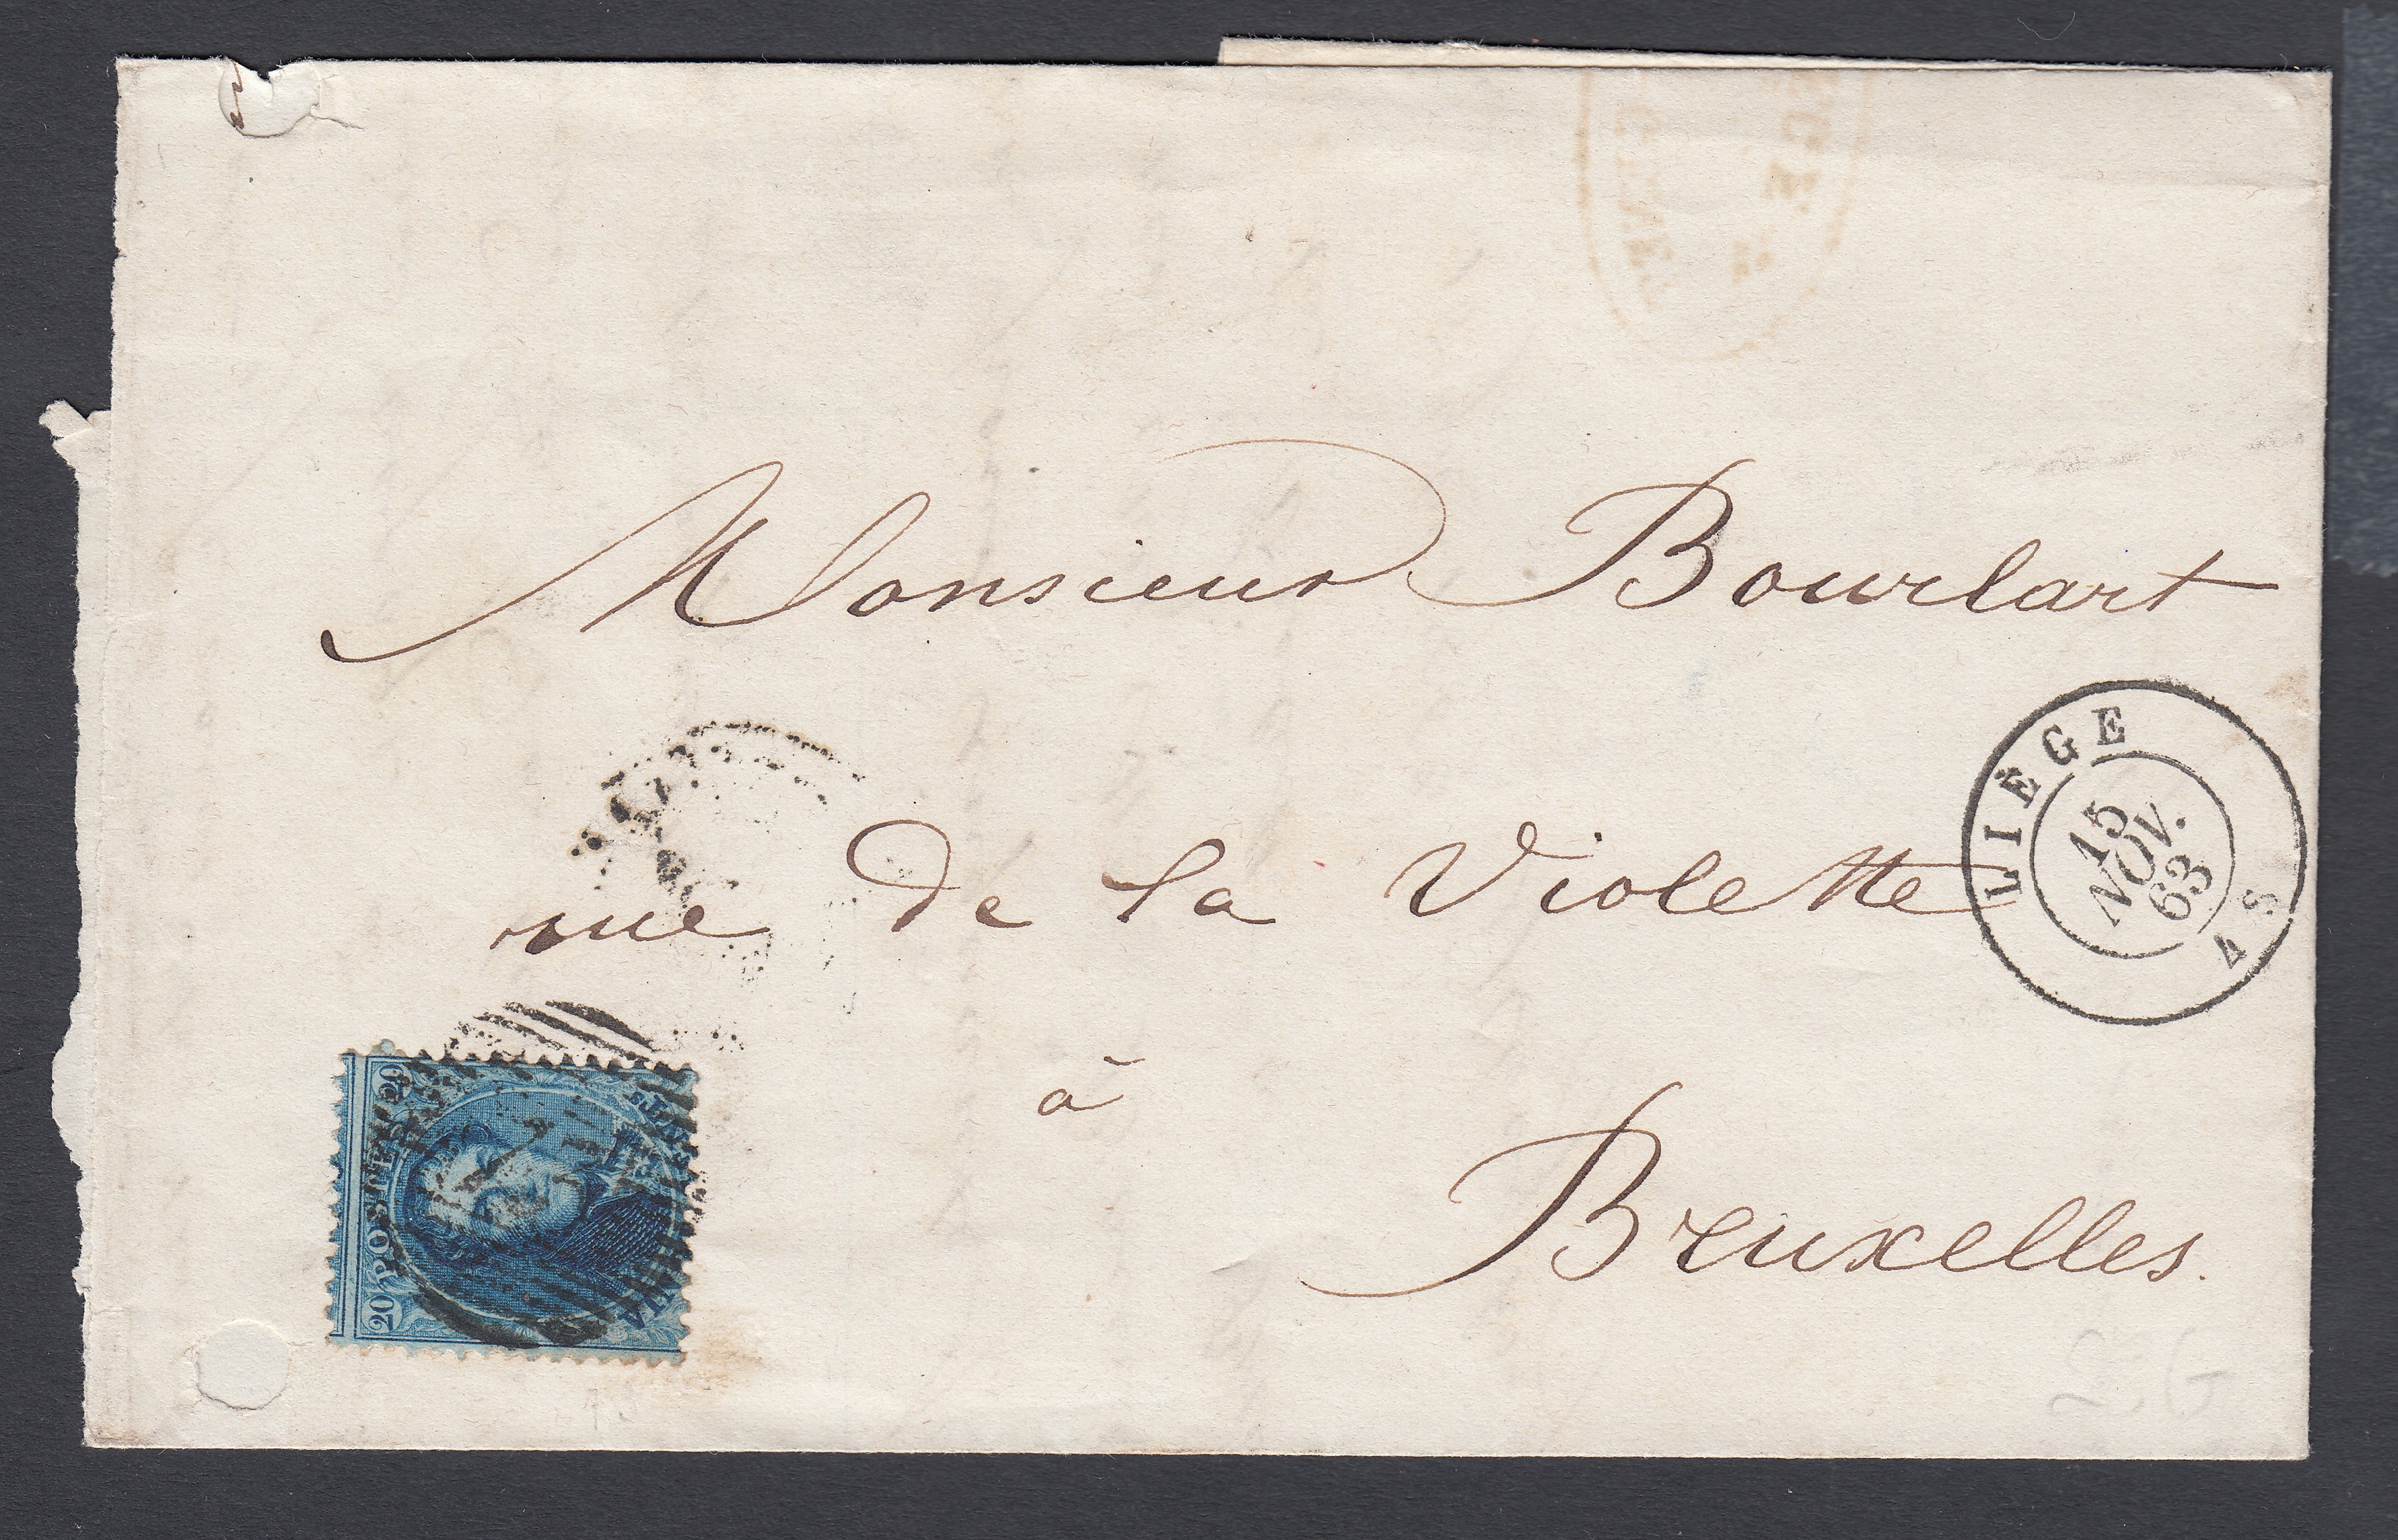 Monsieur Bourlart
rue de la Violette
à
Bruxelles.
LIÉGE
15
NOV.
63
4 S
20 POSTES 20